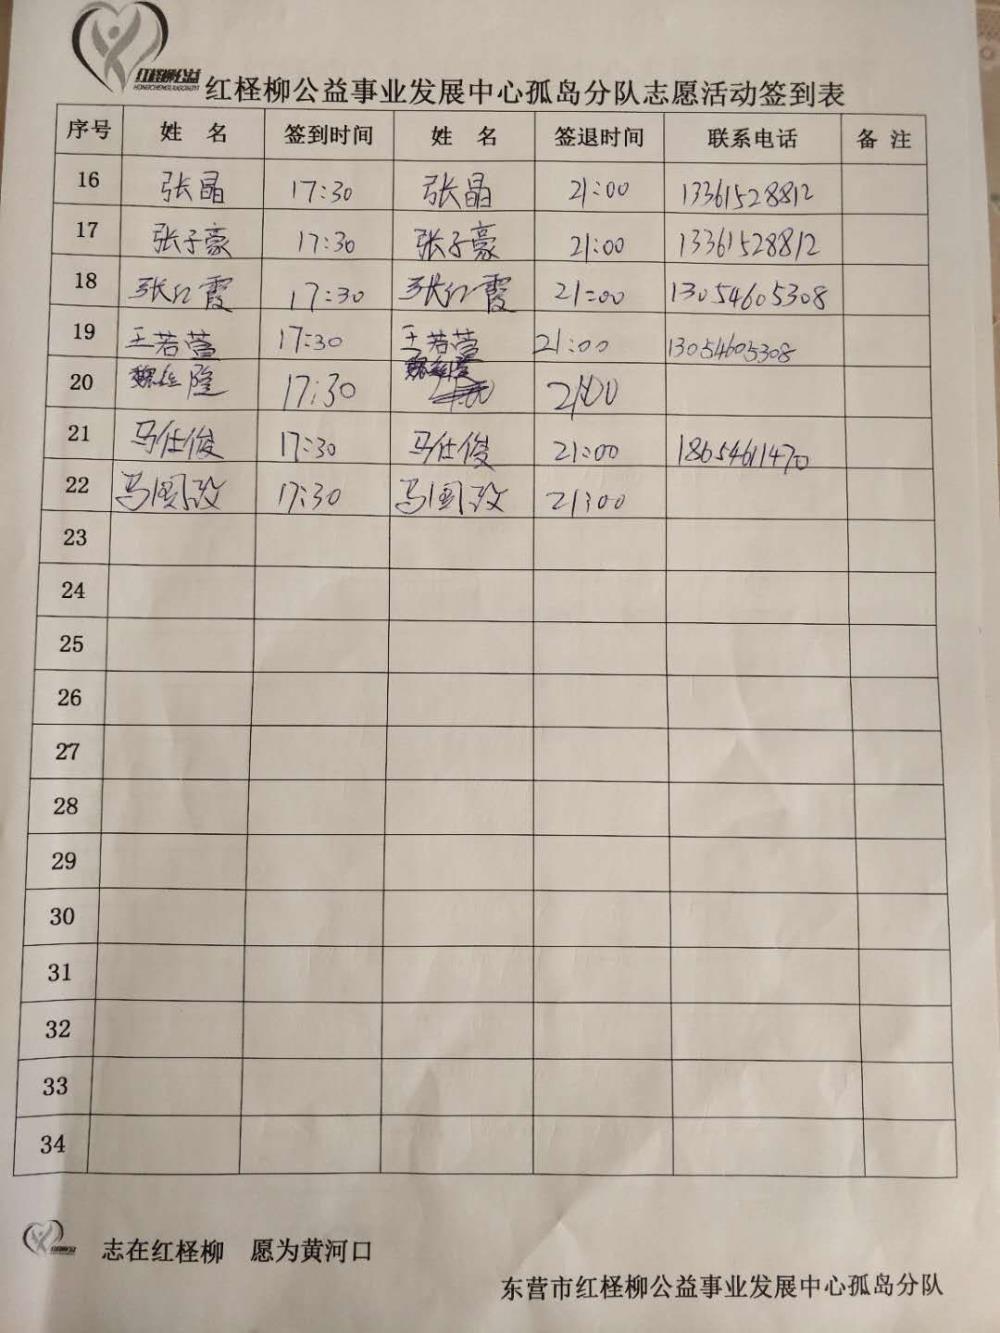 红柽柳公益
HONGCHENGLIUGONGYI
红柽柳公益事业发展中心孤岛分队志愿活动签到表
序号 姓 名 签到时间 姓 名 签退时间 联系电话 备 注
16 张晶 17:30 张晶 21:00 13361528812
17 张子豪 17:30 张子豪 21:00 13361528812
18 张红霞 17:30 张红霞 21:00 13054605308
19 王若萱 17:30 王若萱 21:00 13054605308
20 魏 隆 17:30 魏 隆 21:00
21 马仕俊 17:30 马仕俊 21:00 18654611470
22 马国 17:30 马国 21:00
23
24
25
26
27
28
29
30
31
32
33
34
志在红柽柳 愿为黄河口
东营市红柽柳公益事业发展中心孤岛分队